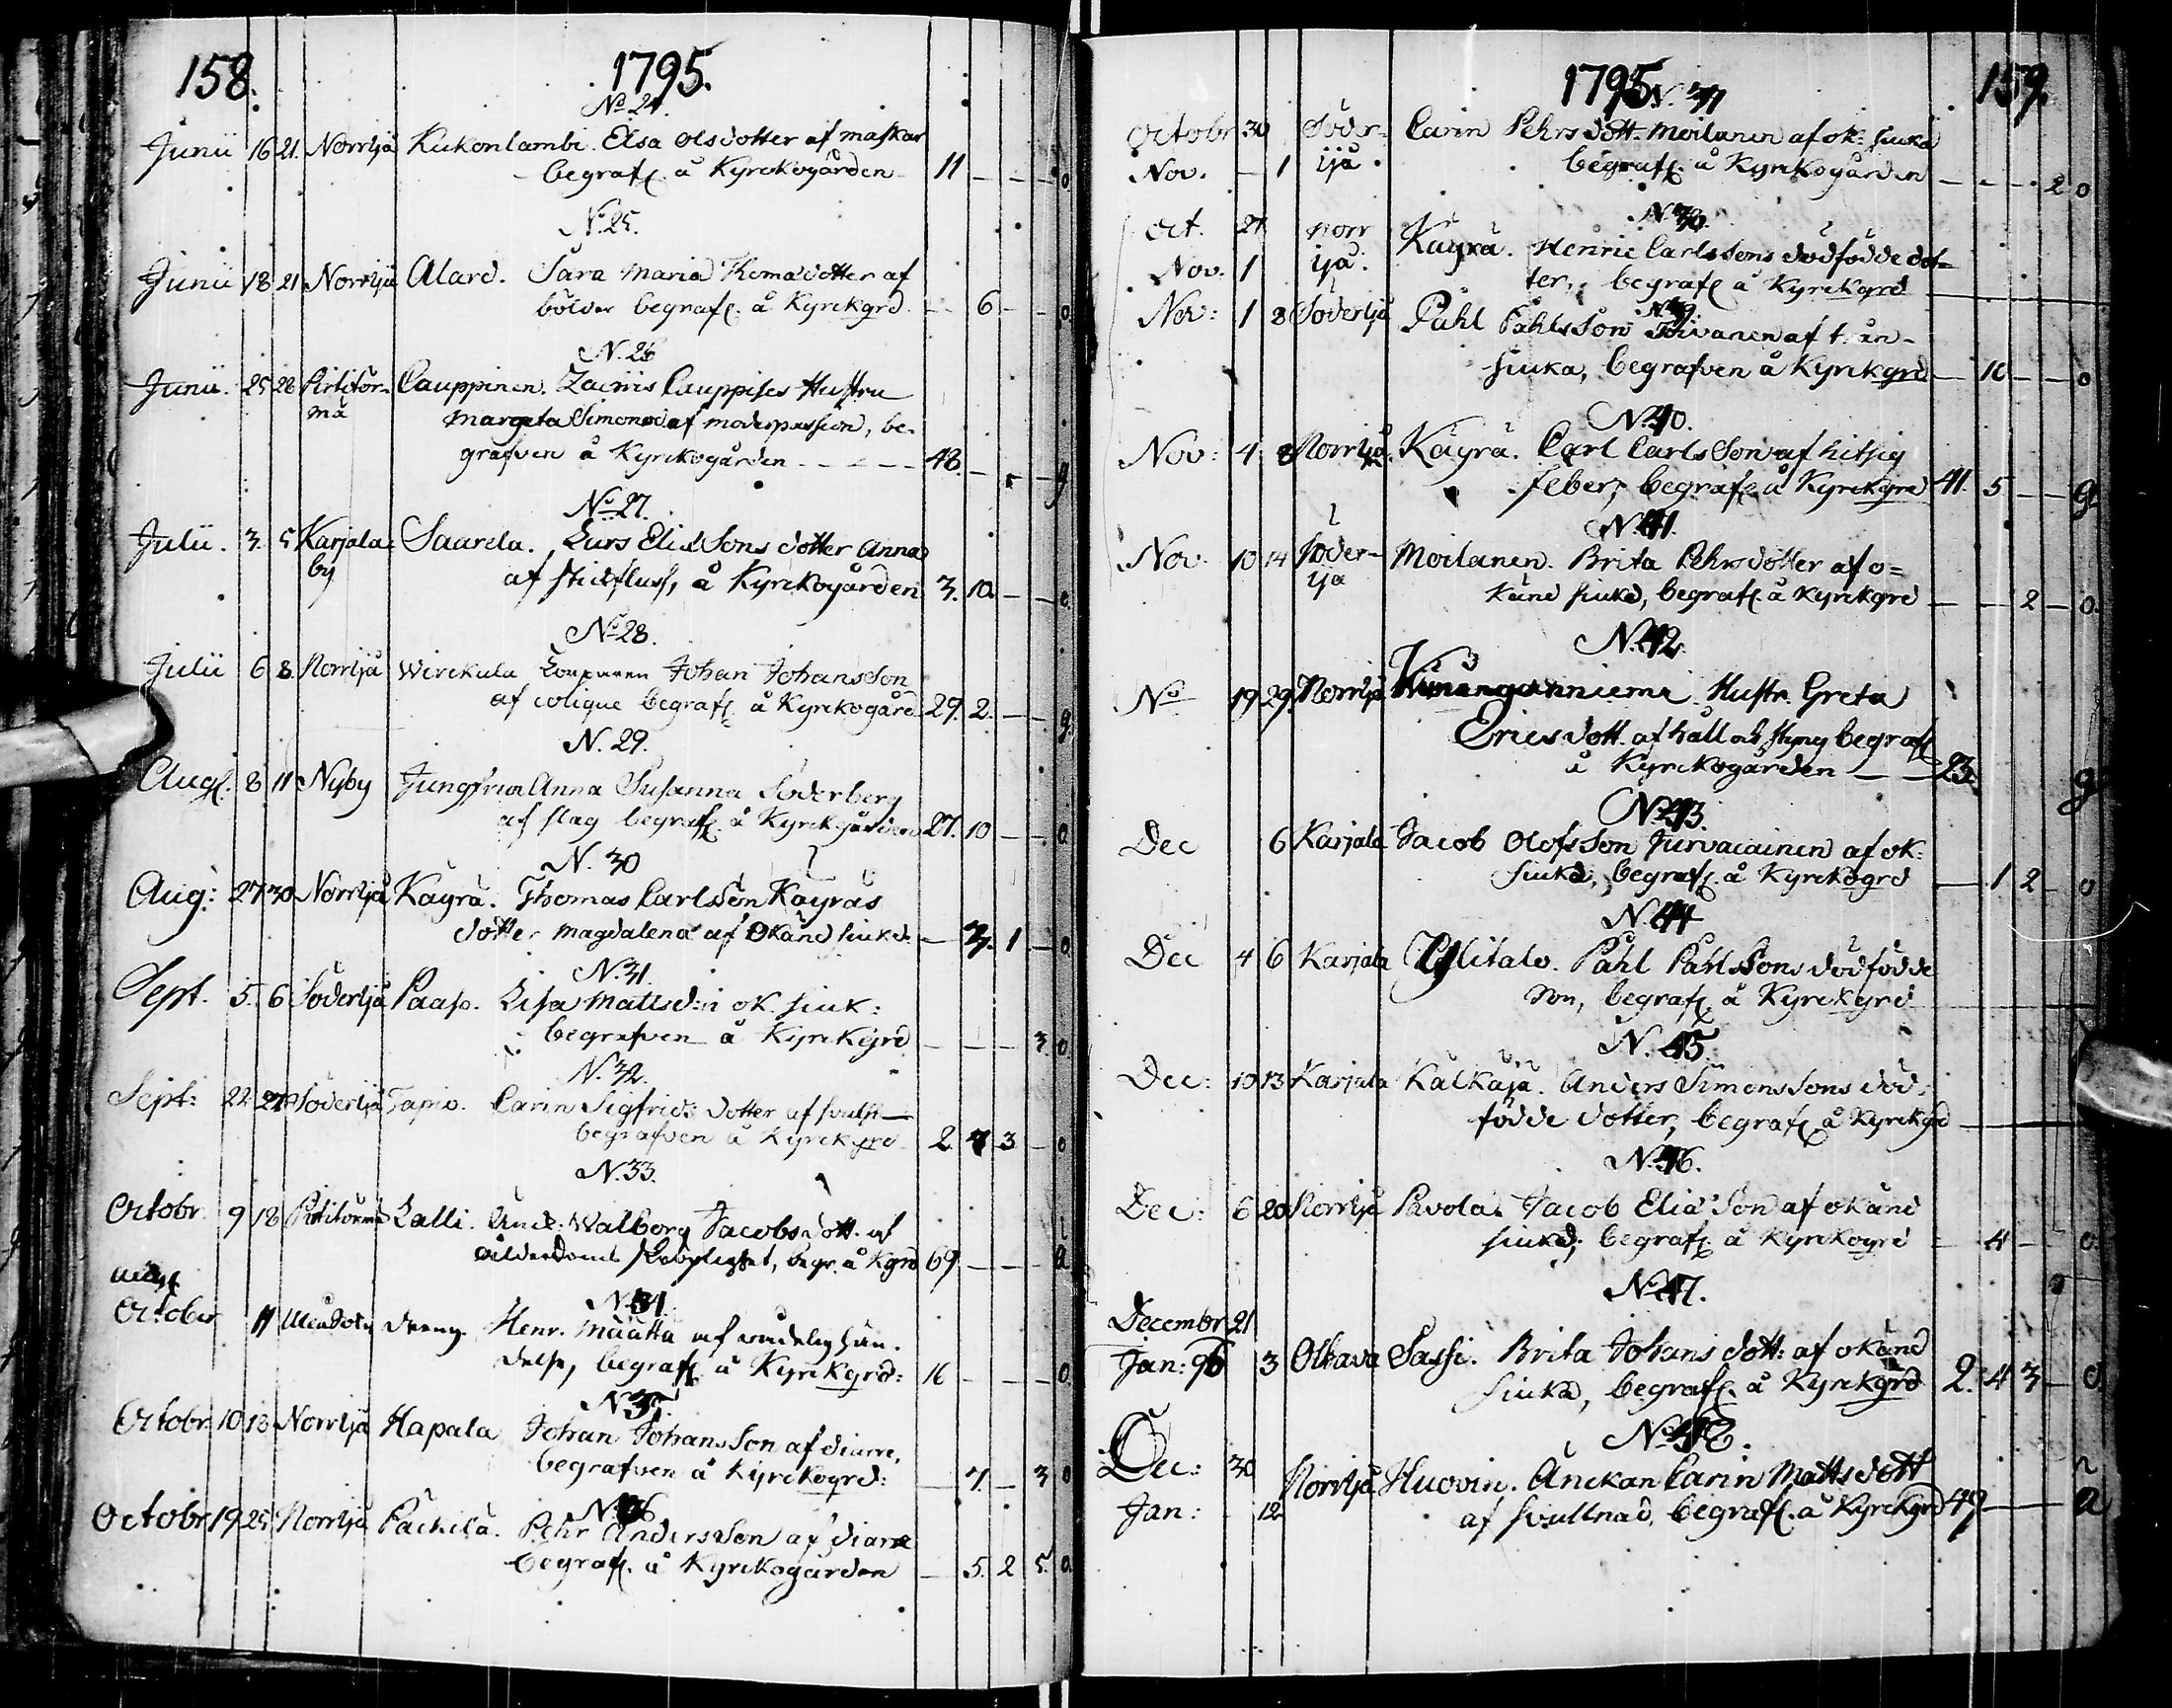 158.
1795.
No 24.
Junii 16 21. Norrljå Kukonlambi. Elsa Olsdotter af maskar
begrafn. å Kyrckogården 11 — — — o
No 25.
Junii 18 21 Norrljå Alard. Sara Maria dotter af
bölder begrafn. å Kyrckgrd — 6 — — o
N. 26
Junii. 25 28 Cauppinen. Cauppises Hustru
Margeta Simonsd af moderpassion, be-
grafven å Kyrckogården — — — 48. — — g
No 27.
Julii. 3. 5 Karjala- Saarela. Lars Eliæ Sons dotter Anna
by
af stickfluss, å Kyrckogården 3. 10. — — o.
No 28.
Julii 6 8. Norrljå Wirckula Johan Johansson
af colique begrafn. å Kyrckogård 29. 2. — — g.
N. 29.
Aug. 8 11 Nyby Jungfrun Anna Susanna Söderberg
af slag begrafn. å Kyrckgården 27. 10 — — o
N. 30
Aug: 27 30 Norrljå Käyrä. Thomas Carlsson Käyräs
dotter Magdalena af Okänd siukd. — 3. 1 — o
N. 31.
Sept. 5. 6 Söderljå Paaso. Lisa Mattsd: i ok. siuk:
begrafven å Kyrckgrd — — — 3. o.
N. 32.
Sept: 22 27 Söderljå Tapio. Carin Sigfrids dotter af svulst
begrafven å Kyrckgrd 2 7 3 — o
N. 33.
Octobr. 9 18 Lalli. Enck: Walborg Jacobsdott. af
ålderdoms begr. å Kgrd 69 — — — a
N. 34.
October 11 dreng Henr. Määttä af wådelig hän-
delse, begrafn. å Kyrckgrd: 16 — — — o.
N. 35
Octobr 10 18 Norrljå Hapala Johan Johansson af diarre,
begrafven å Kyrckogrd: — 7. — 3 o
N. 36
Octobr 19 25. Norrljå Päckilä. Pehr Andersson af diarre
begrafn. å Kyrckogården — 5. 2 5. o.
1795.
159.
N. 37
Octobr 30 Söder- Carin Pehrs dott. Moilanen af ok: siukd
Nov. — 1 ljå. begrafn. å Kyrckogården — — — 2 o
N. 38.
Oct. 27 Norr Käyrä. Henric Carlssons dödfödde dot-
Nov. 1 ljå. ter, begrafn å Kyrckgrd
N. 39.
Nov: 1 8 Söderljå Påhl Påhlsson Toivanen af
siuka, begrafven å Kyrckgrd — 10 — — o
N. 40.
Nov: 4 8 Norrljå. Käyrä. Carl Carlsson af hitsig
feber, begrafn å Kyrckgrd 41. 5 — — g.
N. 41.
Nov. 10 14 Söder- Moilanen. Brita Pehrsdotter af o=
ljå
känd siukd, begrafn. å Kyrckgrd — — 2 — o.
N. 42.
No 19 29. Norrljå Hustr. Greta
Ericsdott. af håll och styng begrafn
å Kyrckogården — — 23. g
N. 43.
Dec 6 Karjala Jacob Olofsson af ok:
siukd, begrafn. å Kyrckogrd — 1 2 — o
N. 44
Dec 4 6 Karjala Ylitalo. Påhl Påhlssons dödfödde
son, begrafn å Kyrckgrd
N. 45.
Dec: 10 13 Karjala Kälkäjä. Anders Simonssons död-
födde dotter, begrafn å Kyrckgrd
N. 46.
Dec: 6 20 Norrljå Pavola. Jacob Elia Son af okänd
siukd; begrafn. å Kyrckogrd — 4 — o.
N. 47.
Decembr 21
Jan: 96 3 Olhava Sassi. Brita Johans dott. af okänd
siukd, begrafn. å Kyrckgrd 2. 4 3 — o.
N. 48.
Dec: 30 Norrljå Huovin. Änckan Carin Mattsdott
Jan: 12 af svullnad, begrafn. å Kyrckgrd 49 — — a